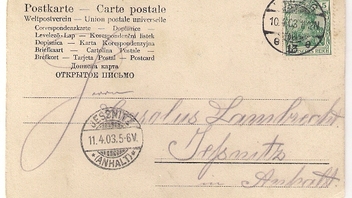 Postkarte — Carte postale
Weltpostverein — Union postale universelle
Correspondenzkarte — Dopisnice
Levelező-Lap — Korespondenční lístek
Dopisnica — Karta Korespondencyjna
Briefkaart — Cartolina Postale
Brefkort — Tarjeta Postal — Postcard
Дописна карта
ОТКРЫТОЕ ПИСЬМО
10.4.03
JESSNITZ
11.4.03.5-6V.
(ANHALT)
Carolus Lambrecht
Jeßnitz
in Anhalt